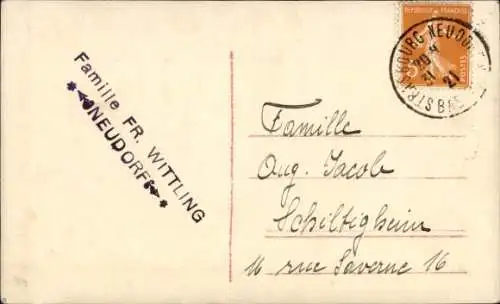 Famille FR. WITTLING
NEUDORF
RÉPUBLIQUE FRANÇAISE
POSTES
STRASBOURG NEUDORF
20 H
31
21
BAS
Famille
Aug. Jacob
Schiltigheim
16 rue Saverne 16